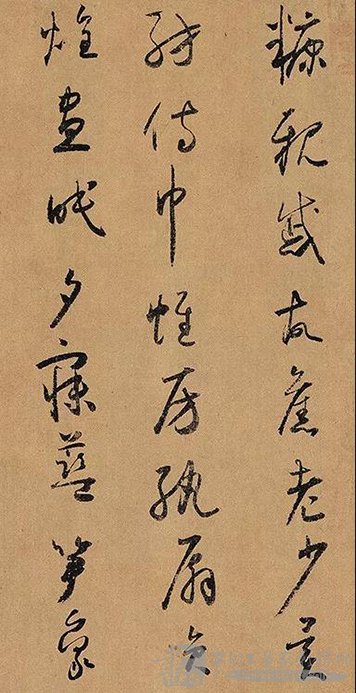 糠親戚故舊老少異
紡侍巾帷房紈扇員
煌晝眠夕寐藍笋象